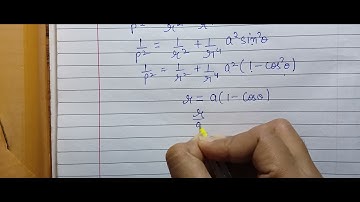 1/p² = 1/r² + 1/r⁴ a² sin²θ
1/p² = 1/r² + 1/r⁴ a² (1 - cos²θ)
r = a(1 - cosθ)
r/a